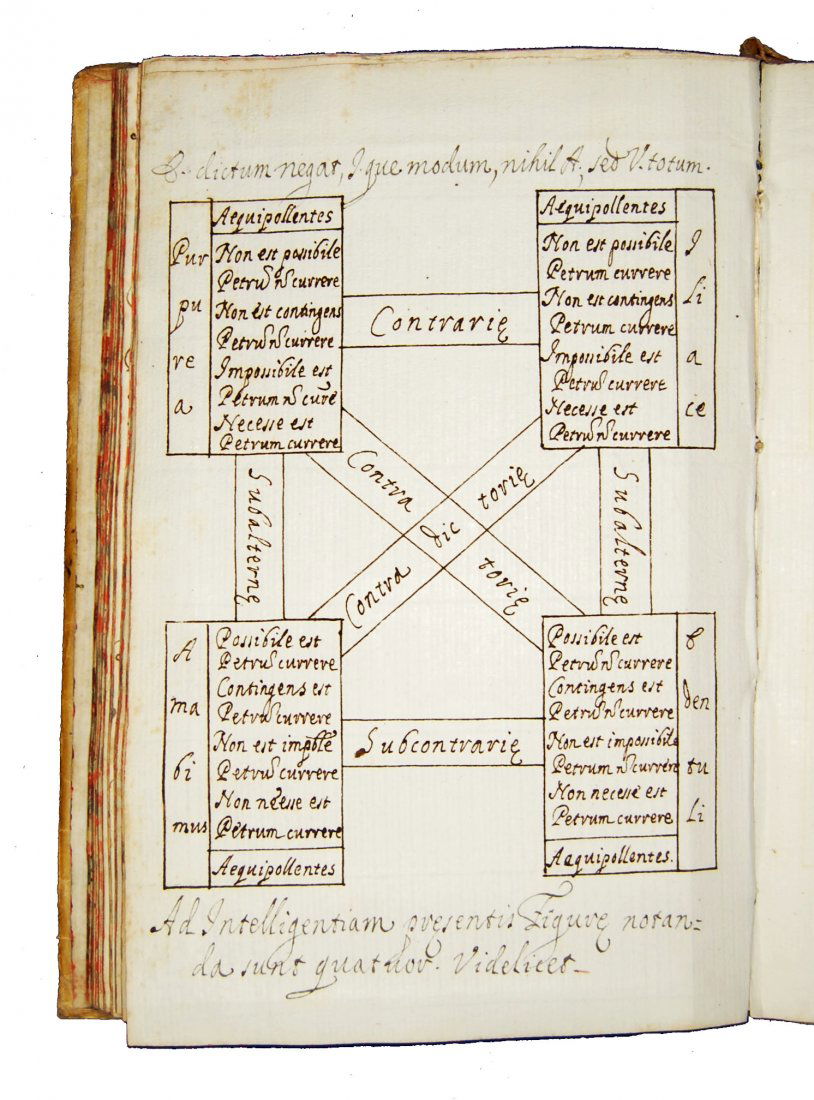 E. dictum negat, I. que modum, nihil A; sed V. totum.
Aequipollentes
Pur
pu
re
a
Non est possibile
Petrū nō currere
Non est contingens
Petrū nō currere
Impossibile est
Petrum nō curē
Necesse est
Petrum currere
Contrarię
Aequipollentes
Non est possibile
Petrum currere
Non est contingens
Petrum currere
Impossibile est
Petrū currere
Necesse est
Petrū nō currere
I
Li
a
ce
Subalternę
Contra
dic
torię
Contra
torię
Subalternę
A
ma
bi
mus
Possibile est
Petrū currere
Contingens est
Petrū currere
Non est impo͞le
Petrū currere
Non nēesse est
Petrum currere
Aequipollentes
Subcontrarię
Possibile est
Petrū nō currere
Contingens est
Petrū nō currere
Non est impossibile
Petrum nō currere
Non necesse est
Petrum currere
Aaquipollentes.
E
den
tu
Li
Ad Intelligentiam pręsentis Figurę notan=
da sunt quatuor. Videlicet_